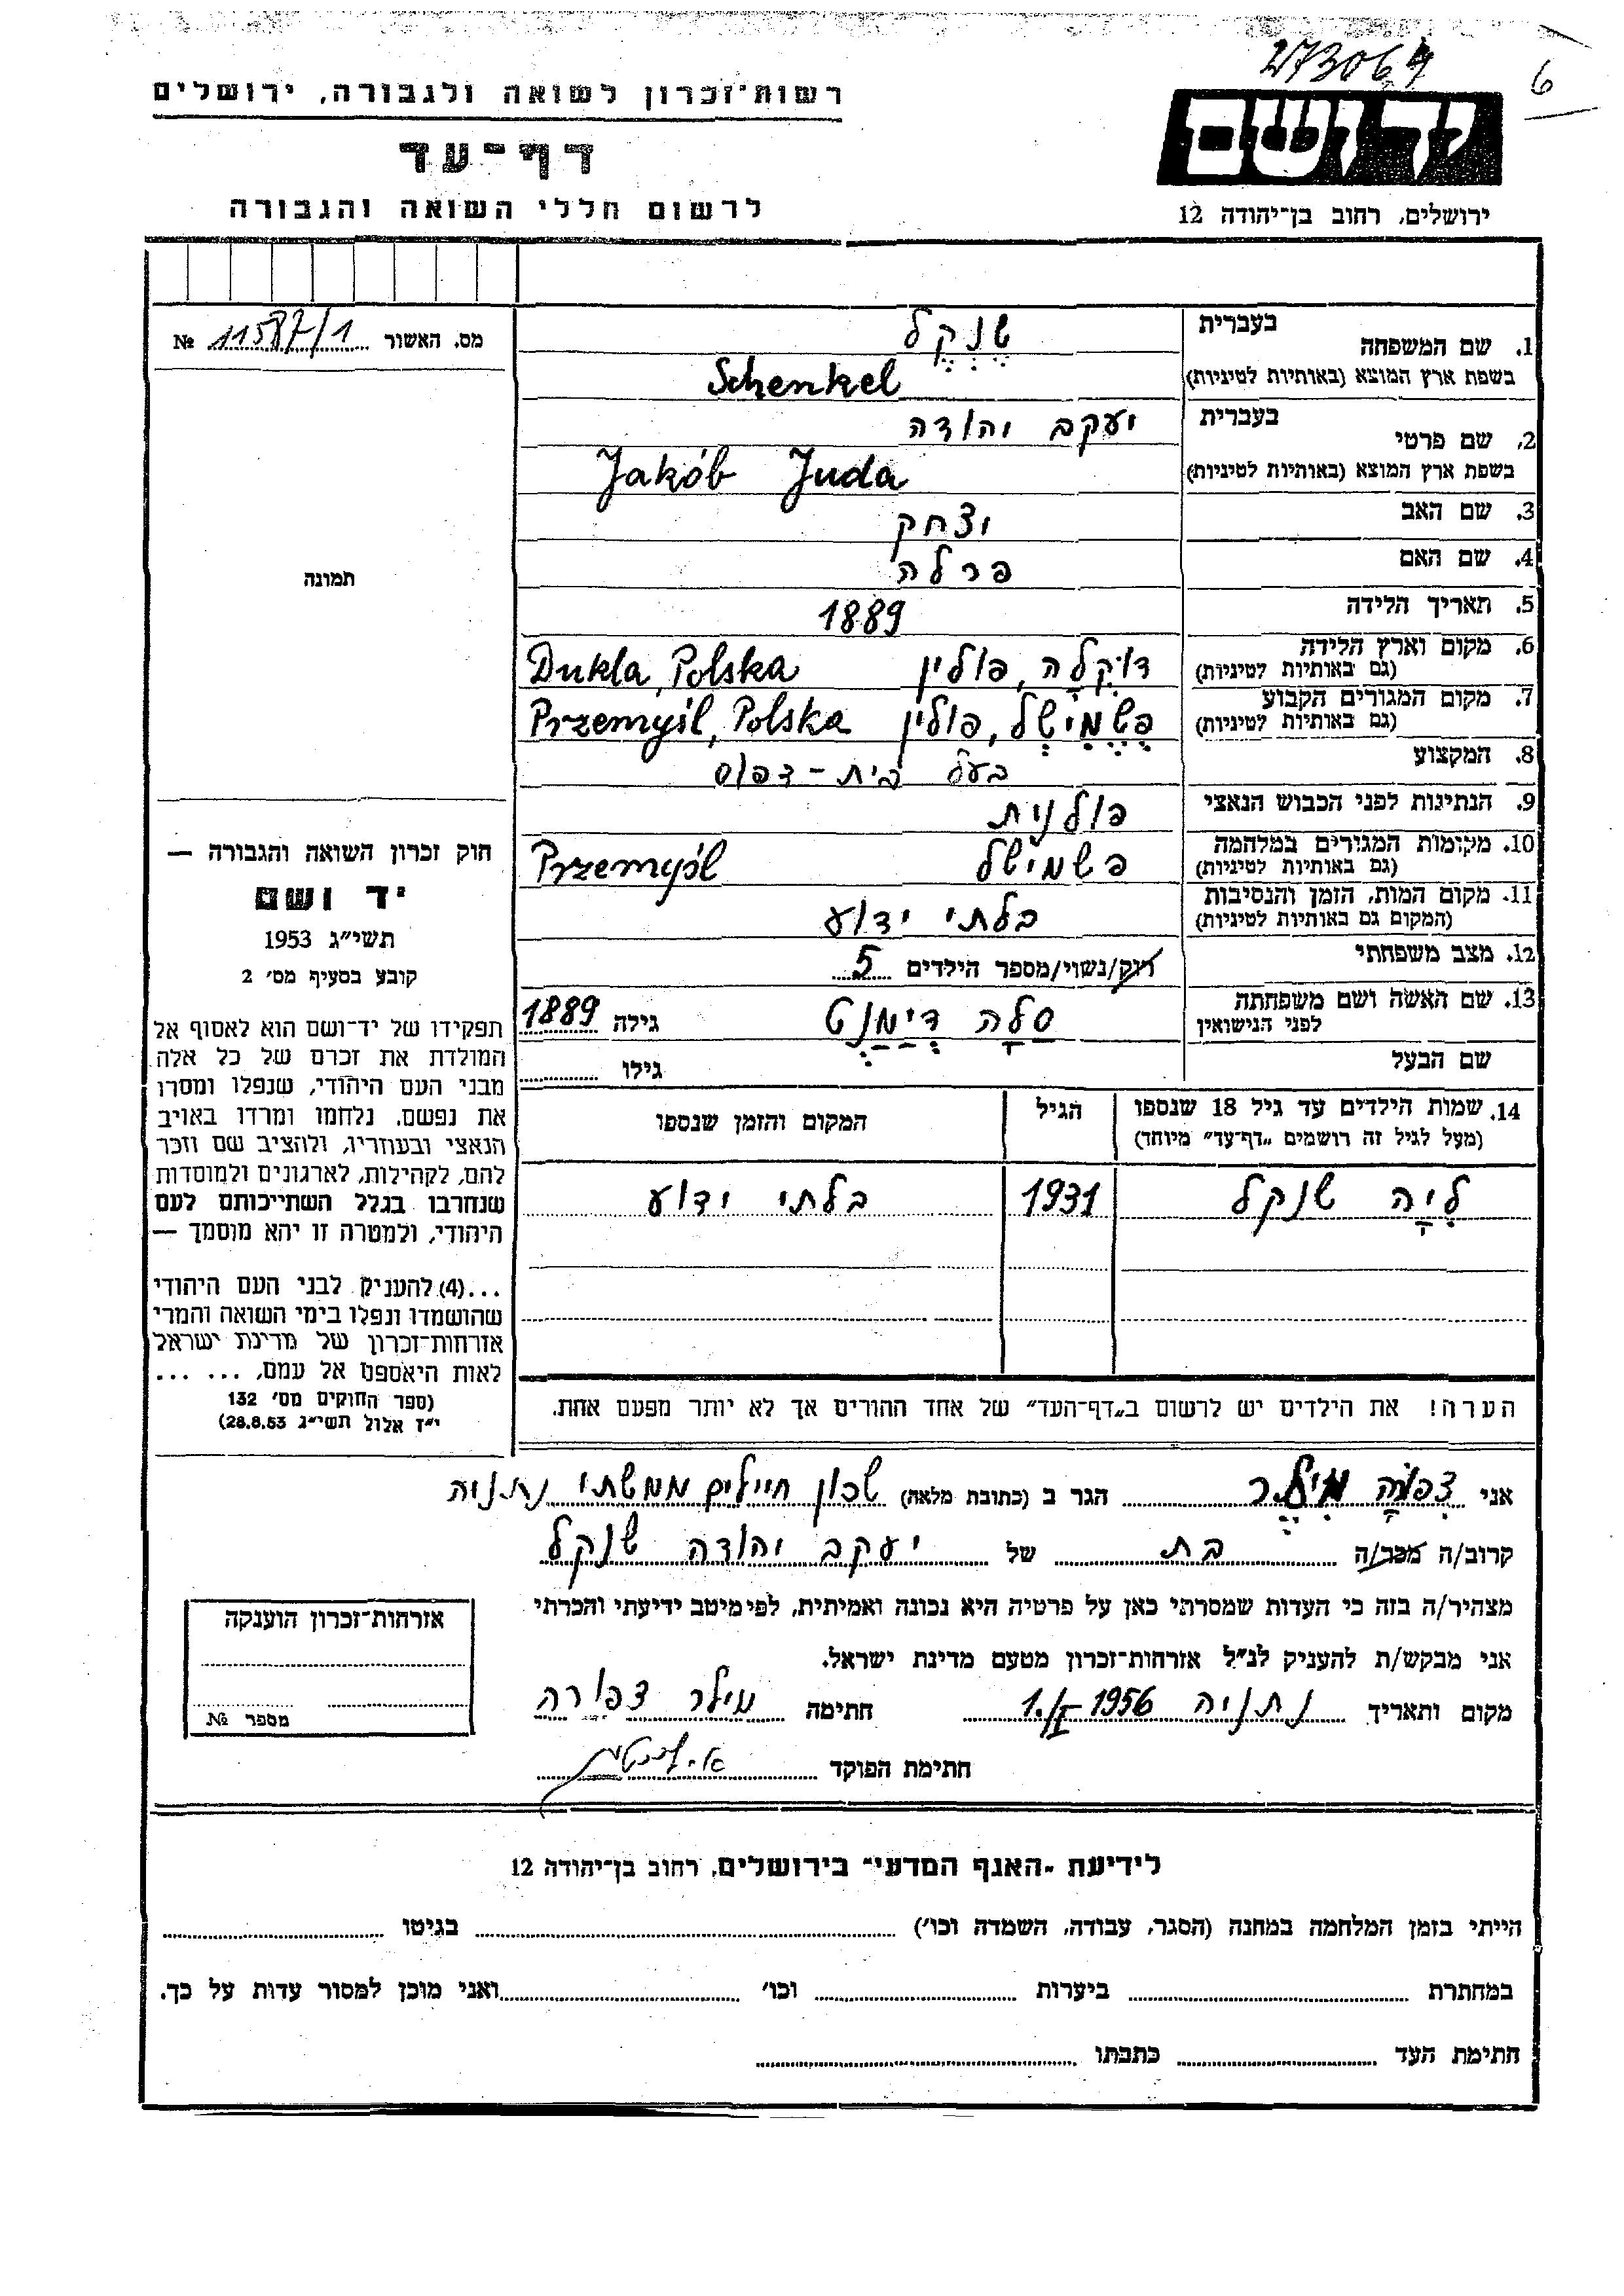 273064
6
רשות־זכרון לשואה ולגבורה, ירושלים
דף־עד
לרשום חללי השואה והגבורה
יד ושם
ירושלים, רחוב בן־יהודה 12
מס. האשור 11587/1 №
תמונה
1. שם המשפחה בעברית שנקל
בשפת ארץ המוצא (באותיות לטיניות) Schenkel
2. שם פרטי בעברית יעקב יהודה
בשפת ארץ המוצא (באותיות לטיניות) Jakób Juda
3. שם האב יצחק
4. שם האם פרלה
5. תאריך הלידה 1889
6. מקום וארץ הלידה (גם באותיות לטיניות) דוקלה, פולין Dukla, Polska
7. מקום המגורים הקבוע (גם באותיות לטיניות) פשמישל, פולין Przemyśl, Polska
8. המקצוע בעל בית-דפוס
9. הנתינות לפני הכבוש הנאצי פולנית
10. מקומות המגורים במלחמה (גם באותיות לטיניות) פשמישל Przemyśl
11. מקום המות, הזמן והנסיבות (המקום גם באותיות לטיניות) בלתי ידוע
12. מצב משפחתי רוק/נשוי/מספר הילדים 5
13. שם האשה ושם משפחתה לפני הנישואין סלה דימנט גילה 1889
שם הבעל גילו
14. שמות הילדים עד גיל 18 שנספו הגיל המקום והזמן שנספו
(מעל לגיל זה רושמים „דף־עד״ מיוחד)
ליה שנקל 1931 בלתי ידוע
הערה! את הילדים יש לרשום ב„דף־העד״ של אחד ההורים אך לא יותר מפעם אחת.
חוק זכרון השואה והגבורה —
יד ושם
תשי״ג 1953
קובע בסעיף מס׳ 2
תפקידו של יד־ושם הוא לאסוף אל
המולדת את זכרם של כל אלה
מבני העם היהודי, שנפלו ומסרו
את נפשם, נלחמו ומרדו באויב
הנאצי ובעוזריו, ולהציב שם וזכר
להם, לקהילות, לארגונים ולמוסדות
שנחרבו בגלל השתייכותם לעם
היהודי, ולמטרה זו יהא מוסמך —
...(4) להעניק לבני העם היהודי
שהושמדו ונפלו בימי השואה והמרי
אזרחות־זכרון של מדינת ישראל
לאות היאספם אל עמם, ... ...
(ספר החוקים מס׳ 132
י״ז אלול תשי״ג 28.8.53)
אני צפורה מילר הגר ב (כתובת מלאה) שכון חיילים ממשלתי נתניה
קרוב/ה מכר/ה בת של יעקב יהודה שנקל
מצהיר/ה בזה כי העדות שמסרתי כאן על פרטיה היא נכונה ואמיתית, לפי מיטב ידיעתי והכרתי
אני מבקש/ת להעניק לנ״ל אזרחות־זכרון מטעם מדינת ישראל.
מקום ותאריך נתניה 1.I 1956 חתימה מילר צפורה
חתימת הפוקד
אזרחות־זכרון הוענקה
מספר №
לידיעת „האגף המדעי״ בירושלים, רחוב בן־יהודה 12
הייתי בזמן המלחמה במחנה (הסגר, עבודה, השמדה וכו׳) בגיטו
במחתרת ביערות וכו׳ ואני מוכן למסור עדות על כך.
חתימת העד כתבתו